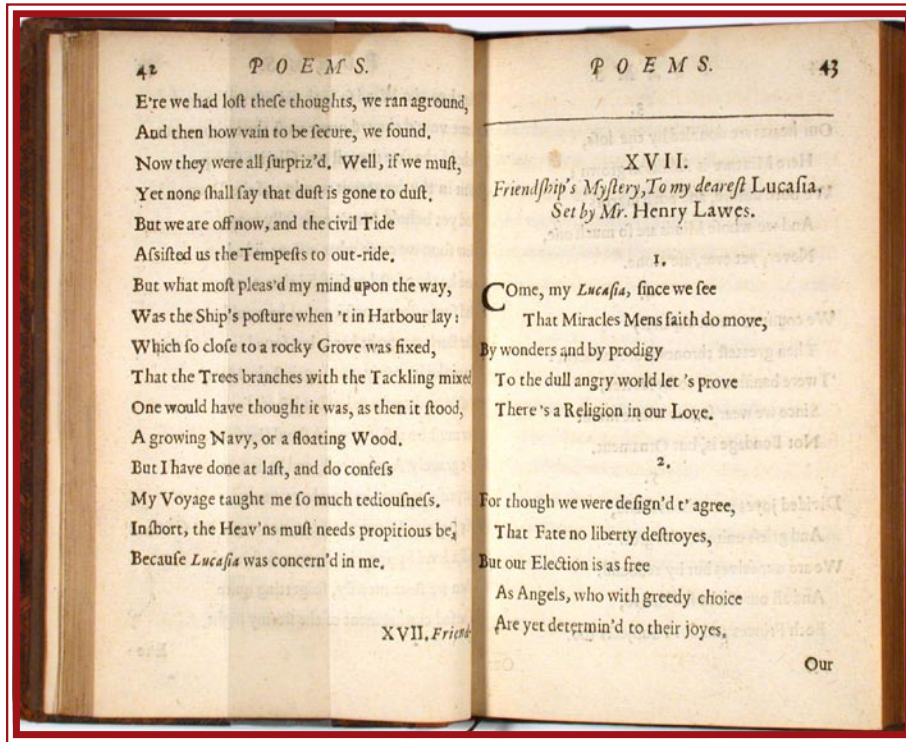 42 POEMS.
E're we had loſt theſe thoughts, we ran aground,
And then how vain to be ſecure, we found.
Now they were all ſurpriz'd. Well, if we muſt,
Yet none ſhall ſay that duſt is gone to duſt.
But we are off now, and the civil Tide
Aſsiſted us the Tempeſts to out-ride.
But what moſt pleas'd my mind upon the way,
Was the Ship's poſture when 't in Harbour lay:
Which ſo cloſe to a rocky Grove was fixed,
That the Trees branches with the Tackling mixed
One would have thought it was, as then it ſtood,
A growing Navy, or a floating Wood.
But I have done at laſt, and do confeſs
My Voyage taught me ſo much tediouſneſs.
In ſhort, the Heav'ns muſt needs propitious be,
Becauſe Lucaſia was concern'd in me.
XVII. Friend-
POEMS. 43
XVII.
Friendſhip's Myſtery, To my deareſt Lucaſia,
Set by Mr. Henry Lawes.
1.
COme, my Lucaſia, ſince we ſee
That Miracles Mens faith do move,
By wonders and by prodigy
To the dull angry world let 's prove
There 's a Religion in our Love.
2.
For though we were deſign'd t' agree,
That Fate no liberty deſtroyes,
But our Election is as free
As Angels, who with greedy choice
Are yet determin'd to their joyes.
Our